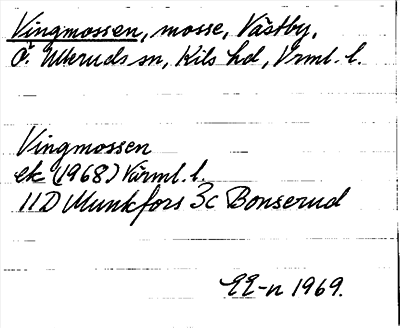 Vingmossen, mosse, Västby,
Ö. Ulleruds sn, Kils hd, Vrml. l.
Vingmossen
ek (1968) Värml. l.
11D Munkfors 3c Bonserud
EE-n 1969.